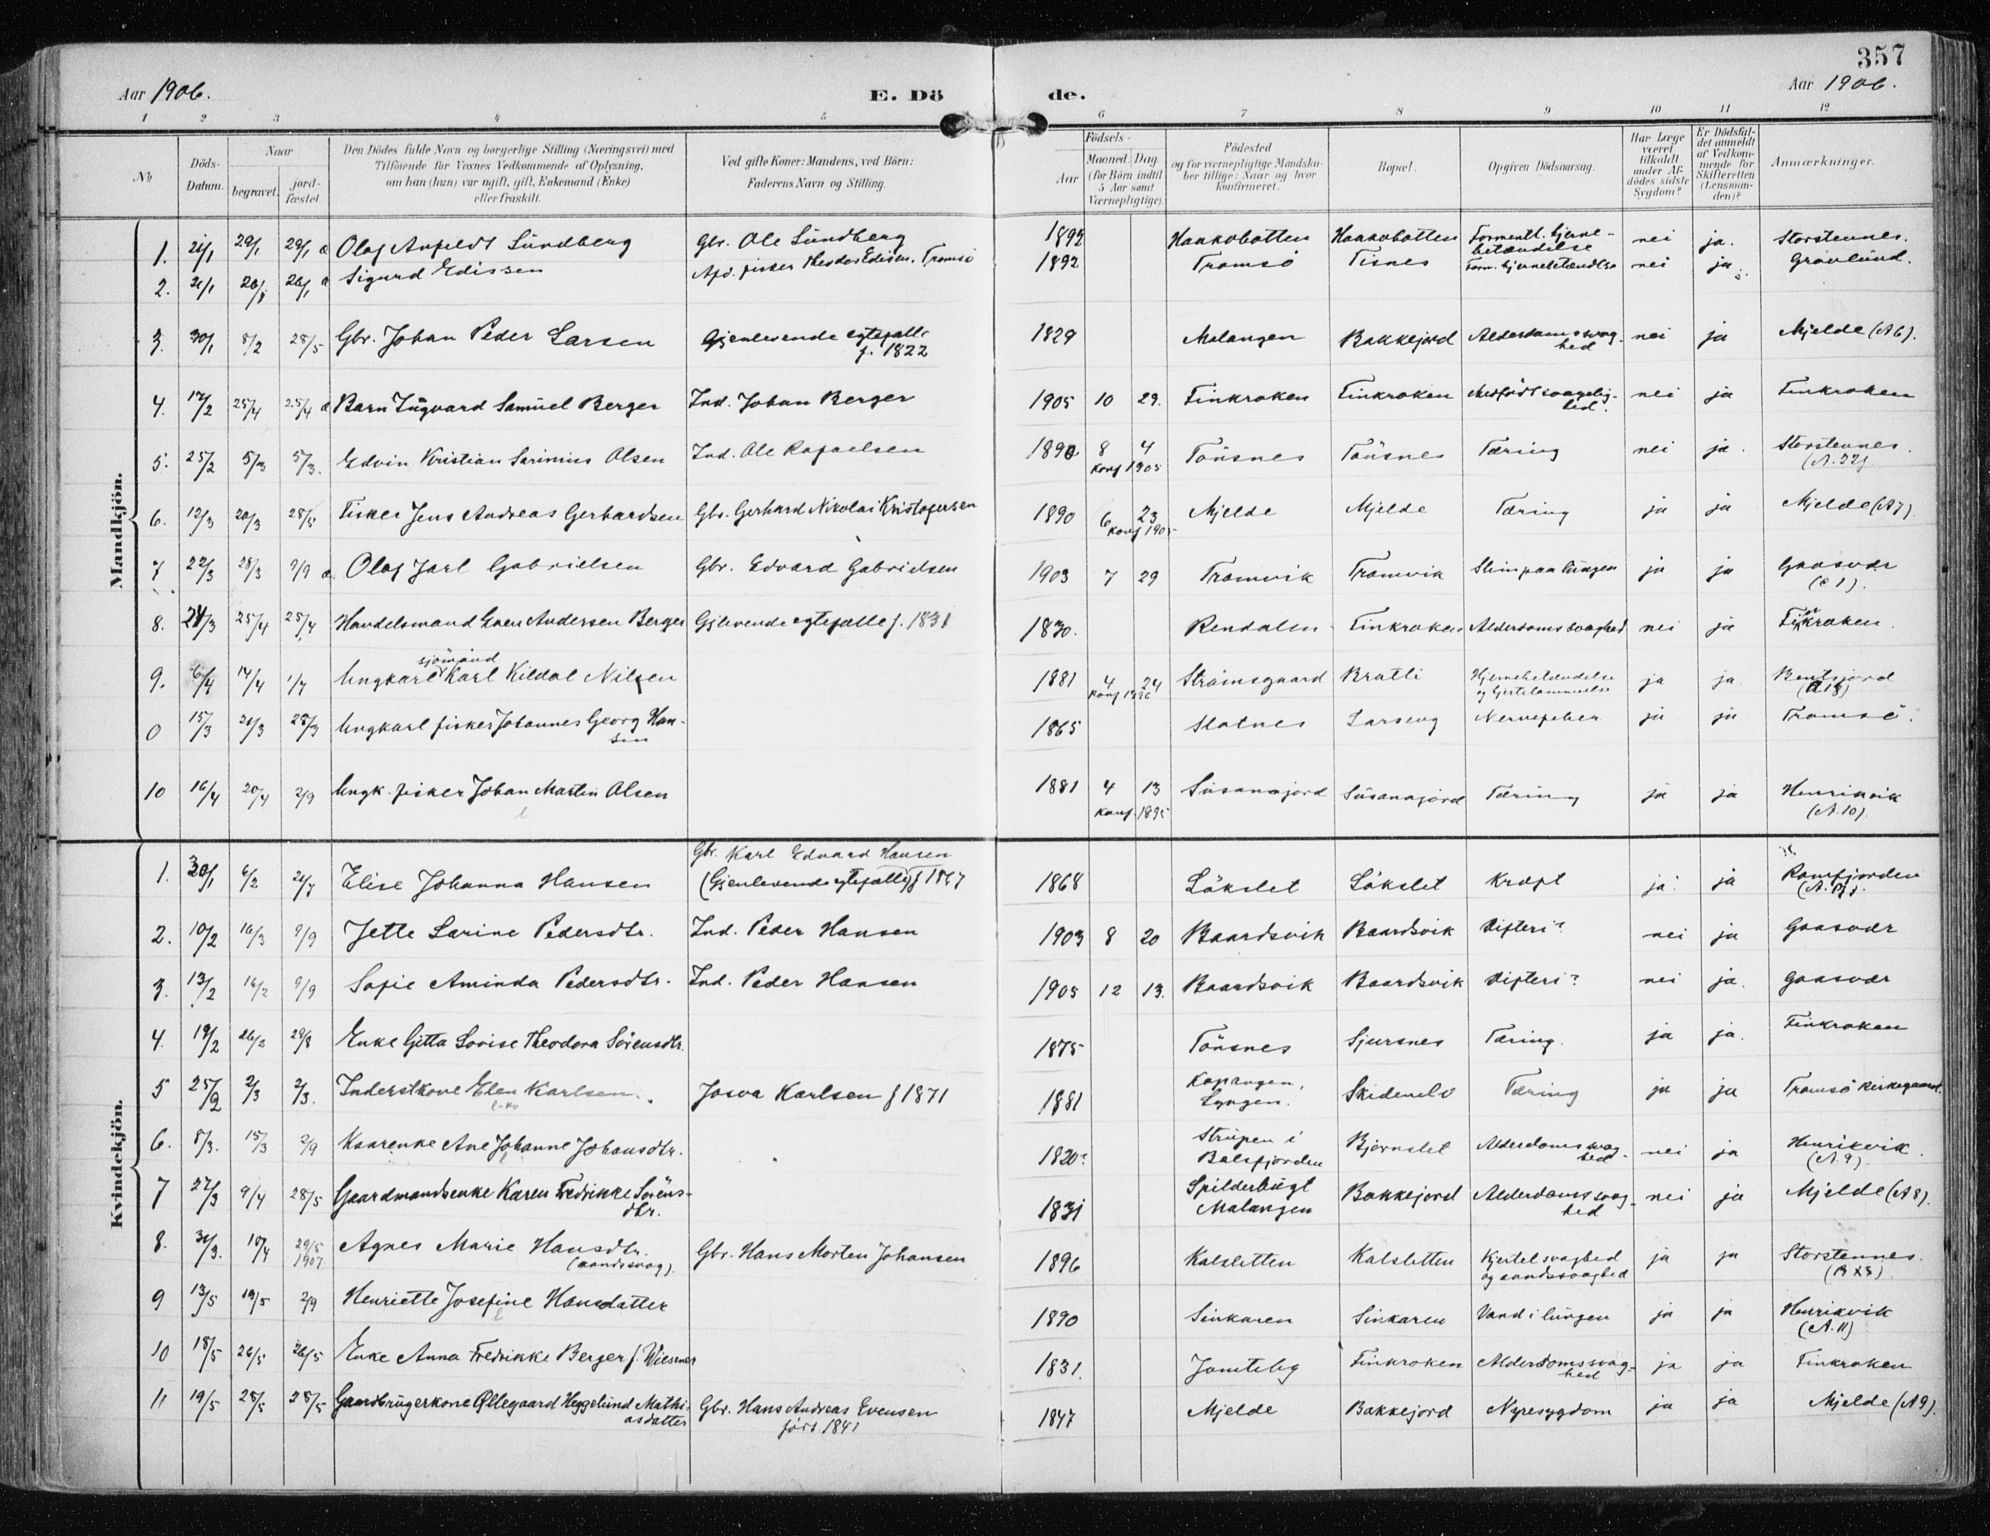 357
Aar 1906.
E. Dö
de.
Aar 1906.
1 2 3 4 5 6 7 8 9 10 11 12
No
Döds-Datum.
Naar
begravet.
jord-fæstet.
Den Dödes fulde Navn og borgerlige Stilling (Næringsvei) med
Tilföiende for Voxnes Vedkommende af Oplysning,
om han (hun) var ugift, gift, Enkemand (Enke)
eller fraskilt.
Ved gifte Koner: Mandens, ved Börn:
Faderens Navn og Stilling.
Födsels-
Aar
Maaned. Dag.
(for Börn indtil
5 Aar samt
Værnepligtige).
Födested
og for værnepligtige Mandska-
ber tillige: Naar og hvor
konfirmeret.
Bopæl.
Opgiven Dödsaarsag.
Har Læge
været
tilkaldt
under Af-
dödes sidste
Sygdom?
Er Dödsfal-
det anmeldt
af Vedkom-
mende for
Skifteretten
(Lensman-
den)?
Anmærkninger.
Mandkjön.
1. 21/1 29/1 29/1 a Olaf Anfeldt Sündberg Gbr. Ole Sündberg 1899 Haakobotten Haakobotten Formentl. hjerne-
betændelse nei ja. Storstennes.
2. 21/1 Sigurd Edissen Afd. fisker Theodor Edisen, Tromsö 1892 Tromsö Tisnes Form. hjernebetændelse nei ja Gravlund.
3. 30/1 8/2 28/5 Gbr. Johan Peder Larsen Gjenlevende egtefælle
f. 1822 1829 Malangen Bakkejord Alderdomssvag-
hed nei ja Mjelde (A6).
4. 17/2 25/4 25/4 a Barn Ingvard Samüel Berger Ind. Johan Berger 1905 10 29. Finkroken Finkroken Medfödt svagelig-
hed. nei ja Finkroken
5. 25/2 5/3 5/3. Edvin Kristian Sarinius Olsen Ind. Ole Rafaelsen 1890 8 4
Konf 1905 Tönsnes Tönsnes Tæring nei ja. Storstennes.
(A. 22).
6. 12/3 20/3 28/5 Fisker Jens Andreas Gerhardsen Gbr. Gerhard Nikolai Kristofersen 1890 6 23
Konf 1905 Mjelde Mjelde Tæring ja ja Mjelde (A7).
7 22/3 28/3 9/9 a Olaf Jarl Gabrielsen Gbr. Edvard Gabrielsen 1903 7 29 Tromvik Tromvik Slim paa lungen ja ja Gaasvær
8. 24/3 25/4 25/4 Handelsmand Even Andersen Berger Gjlevende egtefælle f. 1831 1830. Rendalen Finkroken Alderdomssvaghed nei ja Finkroken.
sjömand
9. 6/4 14/4 1/7 Ungkarl Karl Kildal Nilsen 1881 4 24
Konf 1896 Strömsgaard Bratli Hjernebetændelse
og hjertelammelse ja ja. Bentsjord
0 15/3 21/3 28/3 Ungkarl fisker Johannes Georg Han-
sen 1865 Slatnes Larseng Nervefeber ja ja Tromsö.
10 16/4 20/4 2/9 Ungk. fisker Johan Martin Olsen 1881 4 13
Konf. 1895 Susanajord Susanajord Tæring ja ja Henrikvik
(A. 10).
Kvindekjön.
Gbr. Karl Edvard Hansen
1. 30/1 6/2 21/7 Elise Johanna Hansen (Gjenlevende egtefælle) f 1867 1868 Lökslet Lökslet Kræft ja ja Ramfjorden
2. 10/2 16/3 9/9 Jette Sarine Pedersdtr. Ind. Peder Hansen 1903 8 20 Baardsvik Baardsvik Difteri? nei ja Gaasvær
3. 13/2 16/2 9/9 Sofie Aminda Pedersdtr. Ind. Peder Hansen 1905 12 13. Baardsvik Baardsvik Difteri? nei ja. Gaasvær
4. 19/2 26/2 29/8 Enke Gitta Lovise Theodora Sörensdtr. 1875 Tönsnes Sjursnes Tæring. ja ja. Finkroken
5 25/2 2/3 2/3. Inderstkone Elen Karlsen. Josva Karlsen f 1871 1881 Kopangen,
Lyngen. Skidenelv Tæring ja ja Tromsö Kirkegaard.
6. 8/3. 15/3 2/9 Kaarenke Ane Johanne Johansdtr. 1820? Strupen i
Balsfjorden Bjørnslet Alderdomssvag-
hed nei ja Henrikvik.
(A. 9).
7 27/3 9/4 28/5 Gaardmandsenke Karen Fredrikke Sörens-
dtr. 1831 Spilderbugt
Malangen Bakkejord Alderdomssvag-
hed nei ja Mjelde (A8).
8. 31/3. 10/4 29/5
1907 Agnes Marie Hansdtr.
(aandssvag). Gbr. Hans Morten Johansen 1896 Kalsletten Kalsletten Kjertelsvaghed
og aandssvaghed ja ja Storstennes.
9 13/5 19/5 2/9 Henriette Josefine Hansdatter 1890 Sinkaren Sinkaren Vand i lungen ja ja Henrikvik
(A. 11)
10 18/5 26/5 26/5 Enke Anna Fredrikke Berger f. Wiesener 1831. Jomteby Finkroken Alderdomssvag-
hed ja ja Finkroken
11 19/5 28/5 28/5 Gaardbrugerkone Øllegaard Heggelund Mathi-
asdatter Gbr. Hans Andreas Evensen
född 1841 1847 Mjelde Bakkejord Nyresygdom ja ja Mjelde (A9).